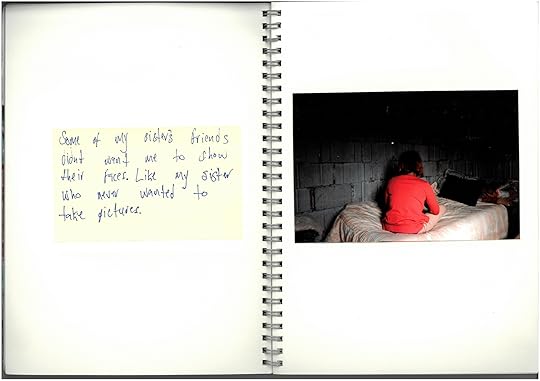 Some of my sister's friends
didnt want me to show
their faces. Like my sister
who never wanted to
take pictures.